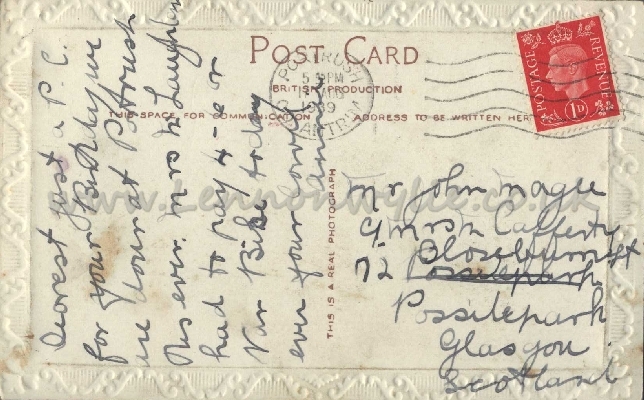 POST CARD
BRITISH PRODUCTION
THIS SPACE FOR COMMUNICATION
ADDRESS TO BE WRITTEN HERE
THIS IS A REAL PHOTOGRAPH
PORTRUSH
5 PM
AUG
1939
CO ANTRIM
POSTAGE
REVENUE
1D
Dearest just a P.C.
for your Birthday we
are down at Portrush
this eve. Mrs McLaughlin
had to pay 4 - e or
Bike today
ever your loving
Annie
Mr John Magee
c/- Mrs McCafferty
72 Possilpark
Possilepark
Glasgow
Scotland
www.Lennonwylie.co.uk